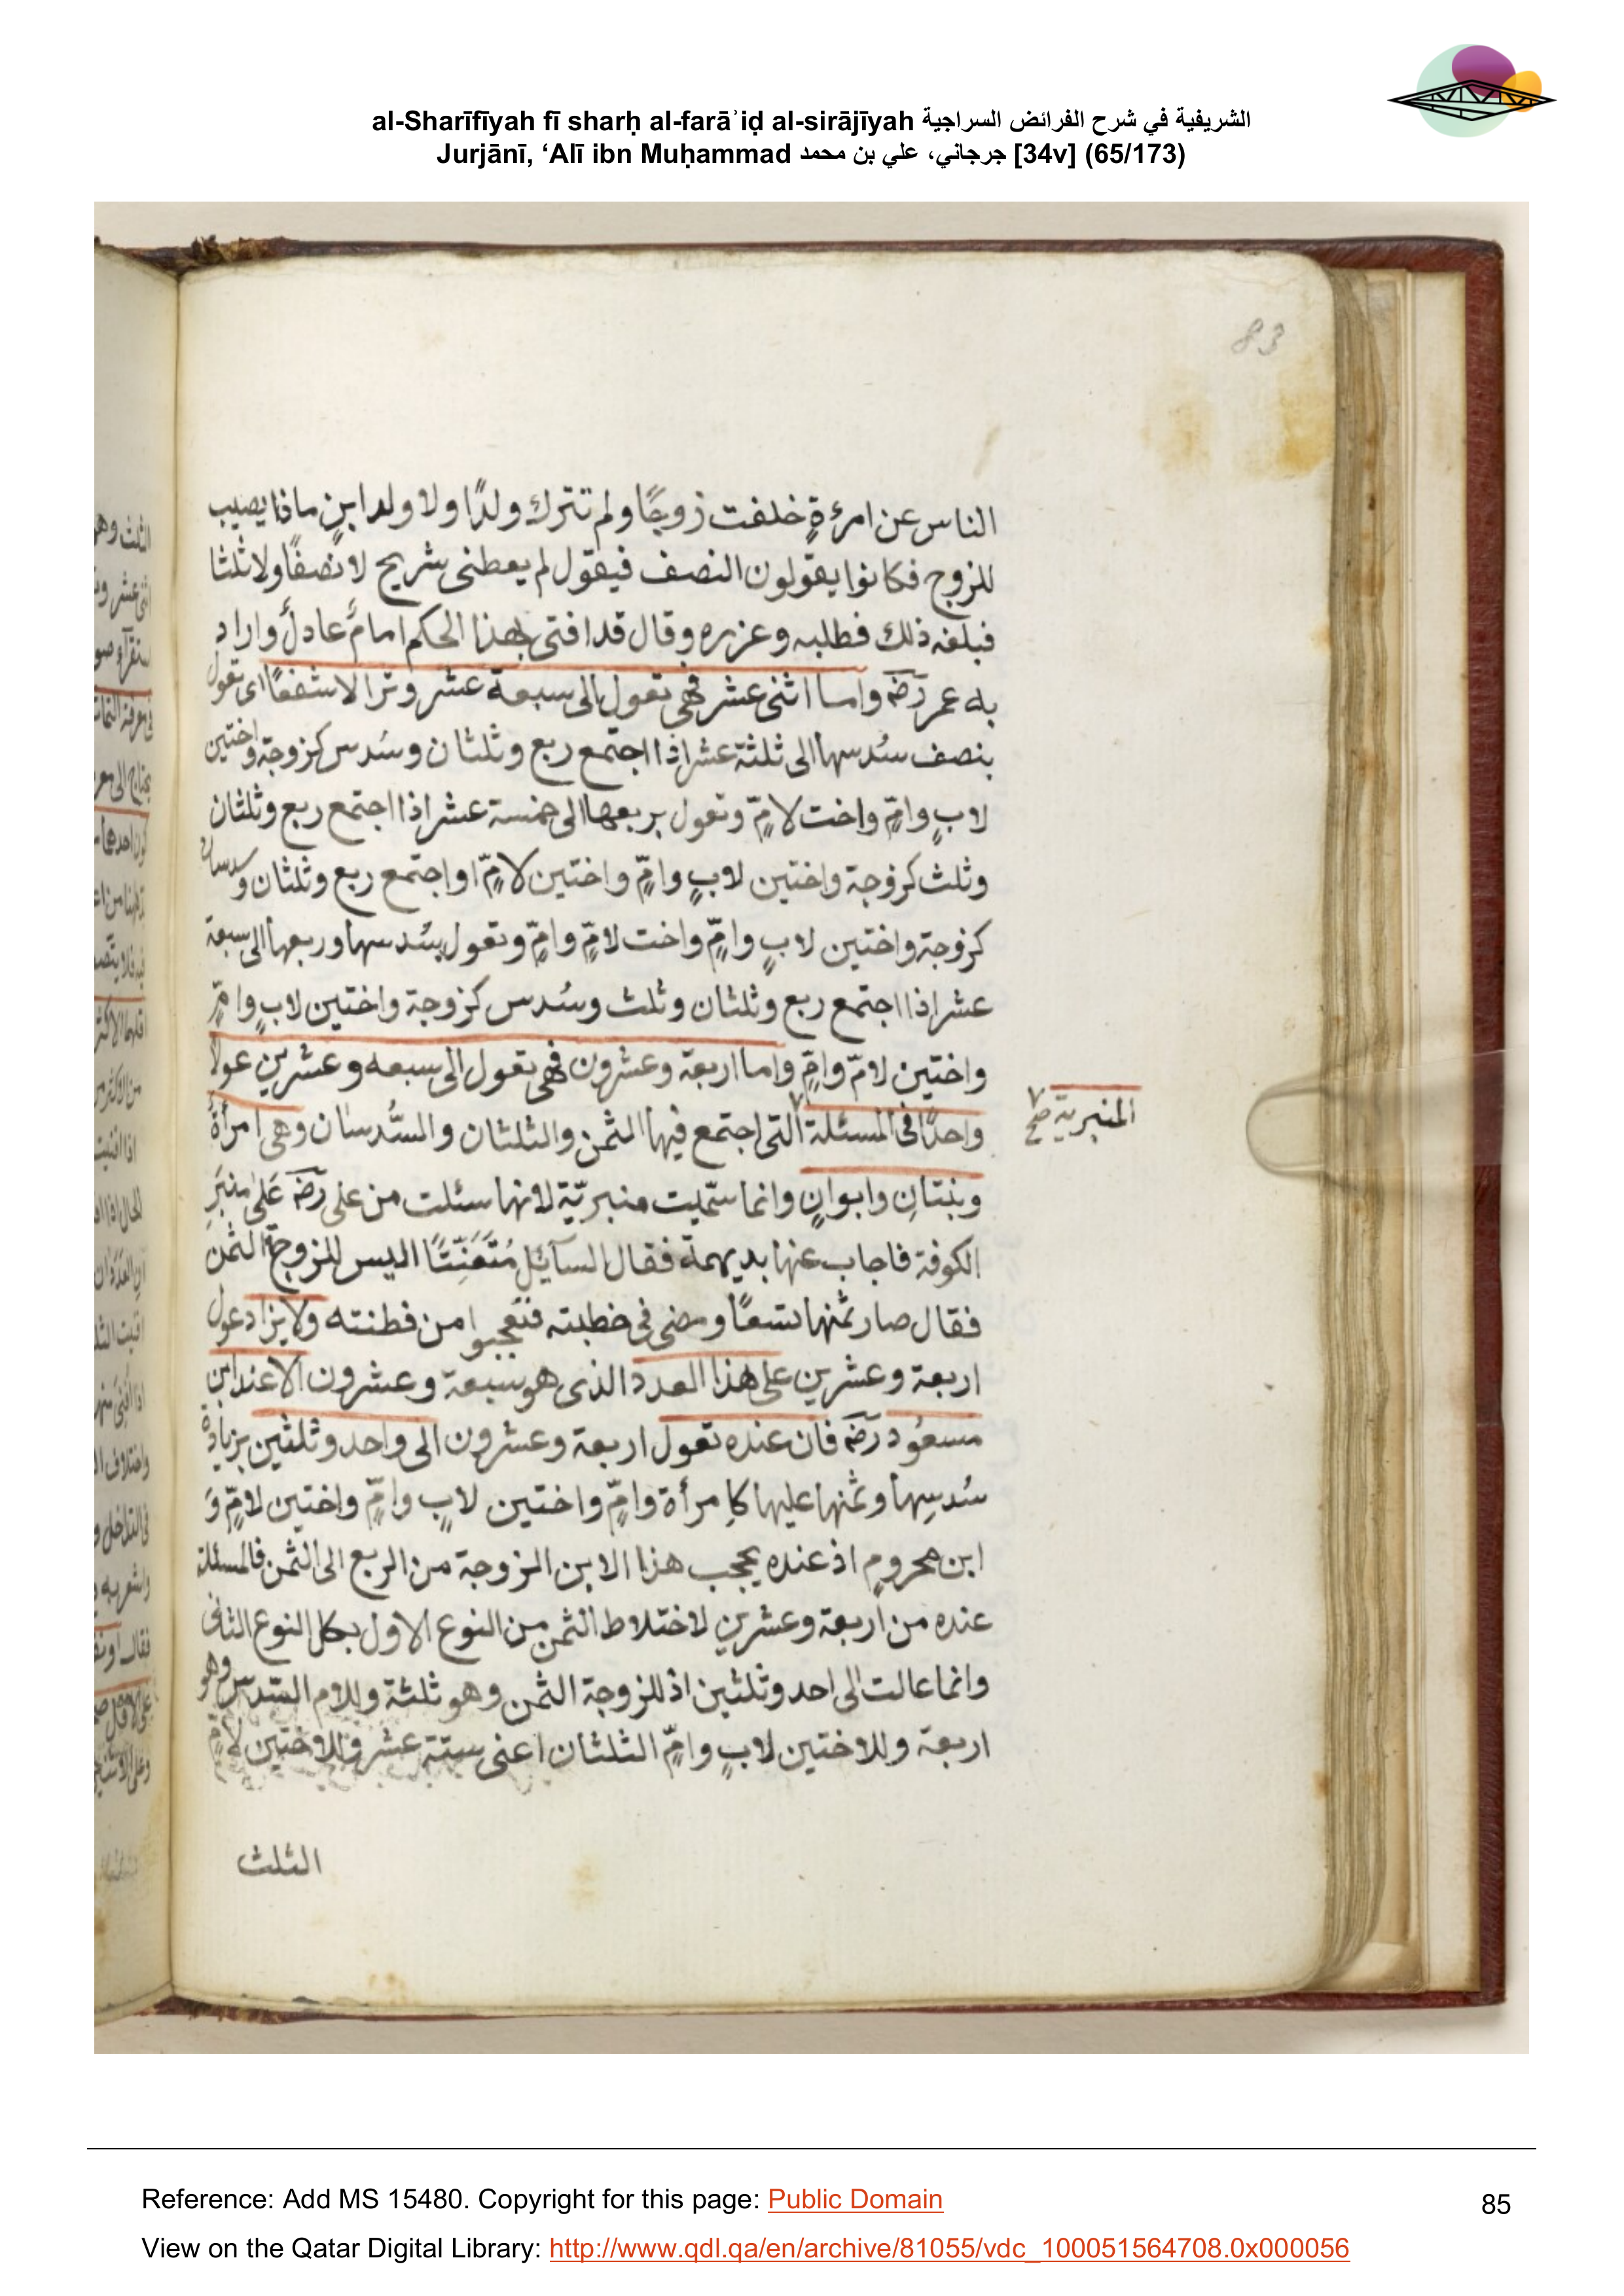 al-Sharīfīyah fī sharḥ al-farāʾiḍ al-sirājīyah الشريفية في شرح الفرائض السراجية
Jurjānī, ‘Alī ibn Muḥammad جرجاني، علي بن محمد [34v] (65/173)
الناس عن امرءةٍ خلفت زوجًا ولم تترك ولدًا ولا ولد ابنٍ ماذا يصيب
للزوج فكانوا يقولون النصف فيقول لم يعطنى شريح لا نصفًا ولا ثلثا
فبلغه ذلك فطلبه وعزره وقال قد افتى بهذا الحكم امامٌ عادلٌ واراد
به عمر رضه واما اثنى عشر فهى تعول الى سبعة عشر وترا لا شفعًا اى تعول
بنصف سُدسها الى ثلثة عشر اذا اجتمع ربع وثلثان وسُدس كزوجة واختين
لابٍ وامٍّ واخت لامٍّ وتعول بربعها الى خمسة عشر اذا اجتمع ربع وثلثان
وثلث كزوجة واختين لابٍ وامٍّ واختين لامٍّ او اجتمع ربع وثلثان وسدسان
كزوجة واختين لابٍ وامٍّ واخت لامٍّ وامٍّ وتعول بسُدسها وربعها الى سبعة
عشر اذا اجتمع ربع وثلثان وثلث وسُدس كزوجة واختين لابٍ وامٍّ
واختين لامّ وامٍّ واما اربعة وعشرون فهى تعول الى سبعه وعشرين عولا
واحدًا فى المسئلة التى اجتمع فيها الثمن والثلثان والسُّدسان وهى امرأةٌ
المنبرية صح
وبنتانِ وابوانِ وانما سمّيت منبريّة لانها سئلت من على رضه عَلىٰ منبَرِ
الكوفة فاجاب عنها بديهة فقال السآئِلُ مُتَعَنِّتًا اليس للزوجة الثمن
فقال صار ثمنها تسعًا ومضى فى خطبته فتعجبوا من فطنته ولا يزاد عول
اربعة وعشرين على هذا العدد الذى هو سبعة وعشرون الا عند ابن
مسعُود رضه فان عنده تعول اربعة وعشرون الى واحد وثلثين بزيادة
سُدسِها وثمنها عليها كامرأة وامٍّ واختين لابٍ وامٍّ واختين لامٍّ وَ
ابن محرومٍ اذ عنده يحجب هذا الابن الزوجة من الربع الى الثمن فالمسئلة
عنده من اربعة وعشرين لاختلاط الثمن من النوع الاول بكل النوع الثانى
وانما عالت الى احد وثلثين اذ للزوجة الثمن وهو ثلثة وللام السّدس وهو
اربعة وللاختين لابٍ وامٍّ الثلثان اعنى ستة عشر وللاختين لامٍّ
الثلث
Reference: Add MS 15480. Copyright for this page: Public Domain
85
View on the Qatar Digital Library: http://www.qdl.qa/en/archive/81055/vdc_100051564708.0x000056